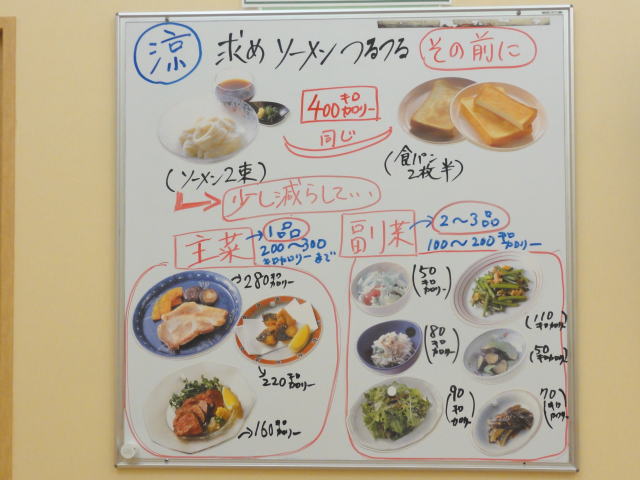 涼 求め ソーメン つるつる その前に
400キロカロリー
同じ
(ソーメン2束)
(食パン2枚半)
少し減らして…
主菜→1品
200~300キロカロリーまで
副菜→2~3品
100~200キロカロリー
280キロカロリー
220キロカロリー
160キロカロリー
(50キロカロリー)
(110キロカロリー)
(80キロカロリー)
(50キロカロリー)
(90キロカロリー)
(70キロカロリー)